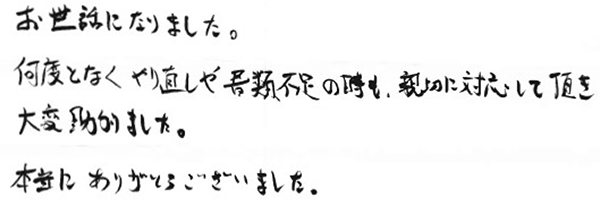 お世話になりました。
何度となくやり直しや書類不足の時も、親切に対応して頂き
大変助かりました。
本当にありがとうございました。